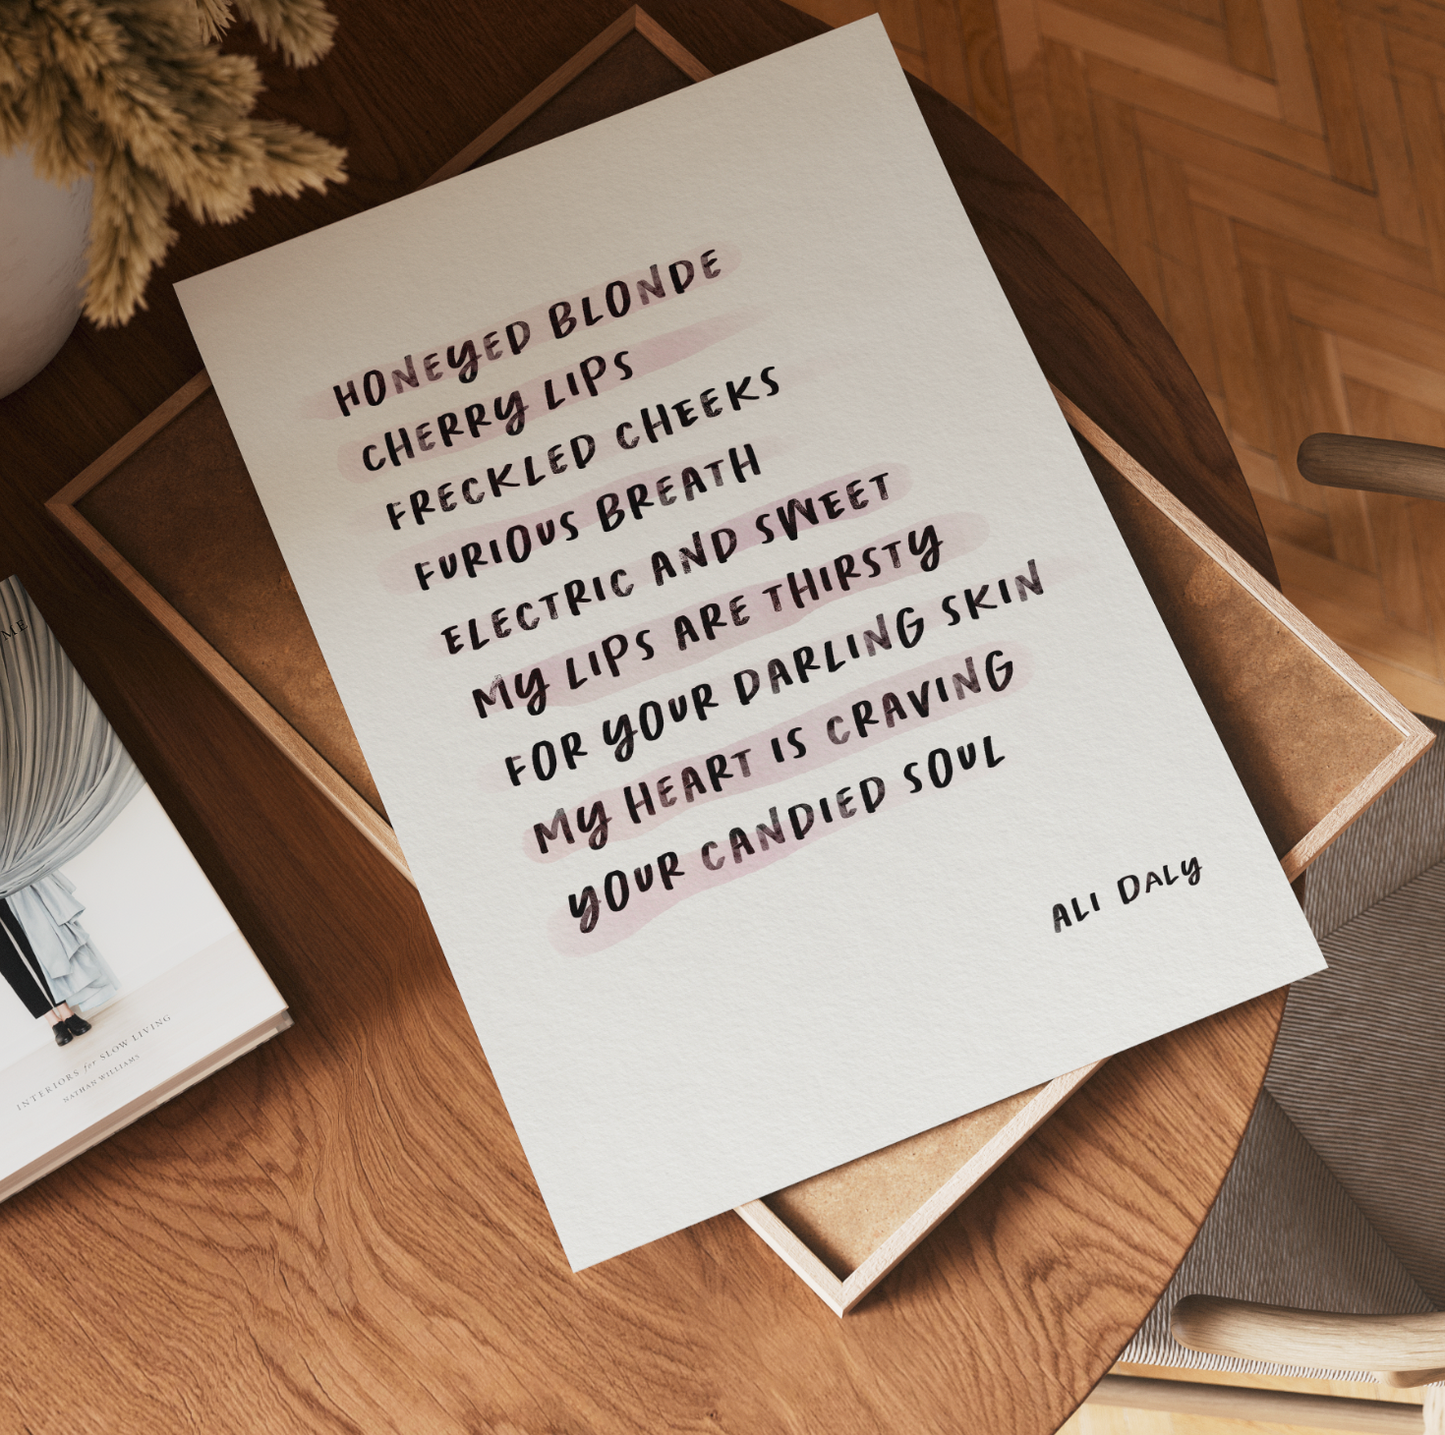 HONEYED BLONDE
CHERRY LIPS
FRECKLED CHEEKS
FURIOUS BREATH
ELECTRIC AND SWEET
MY LIPS ARE THIRSTY
FOR YOUR DARLING SKIN
MY HEART IS CRAVING
YOUR CANDIED SOUL
ALI DALY
ME
INTERIORS for SLOW LIVING
NATHAN WILLIAMS